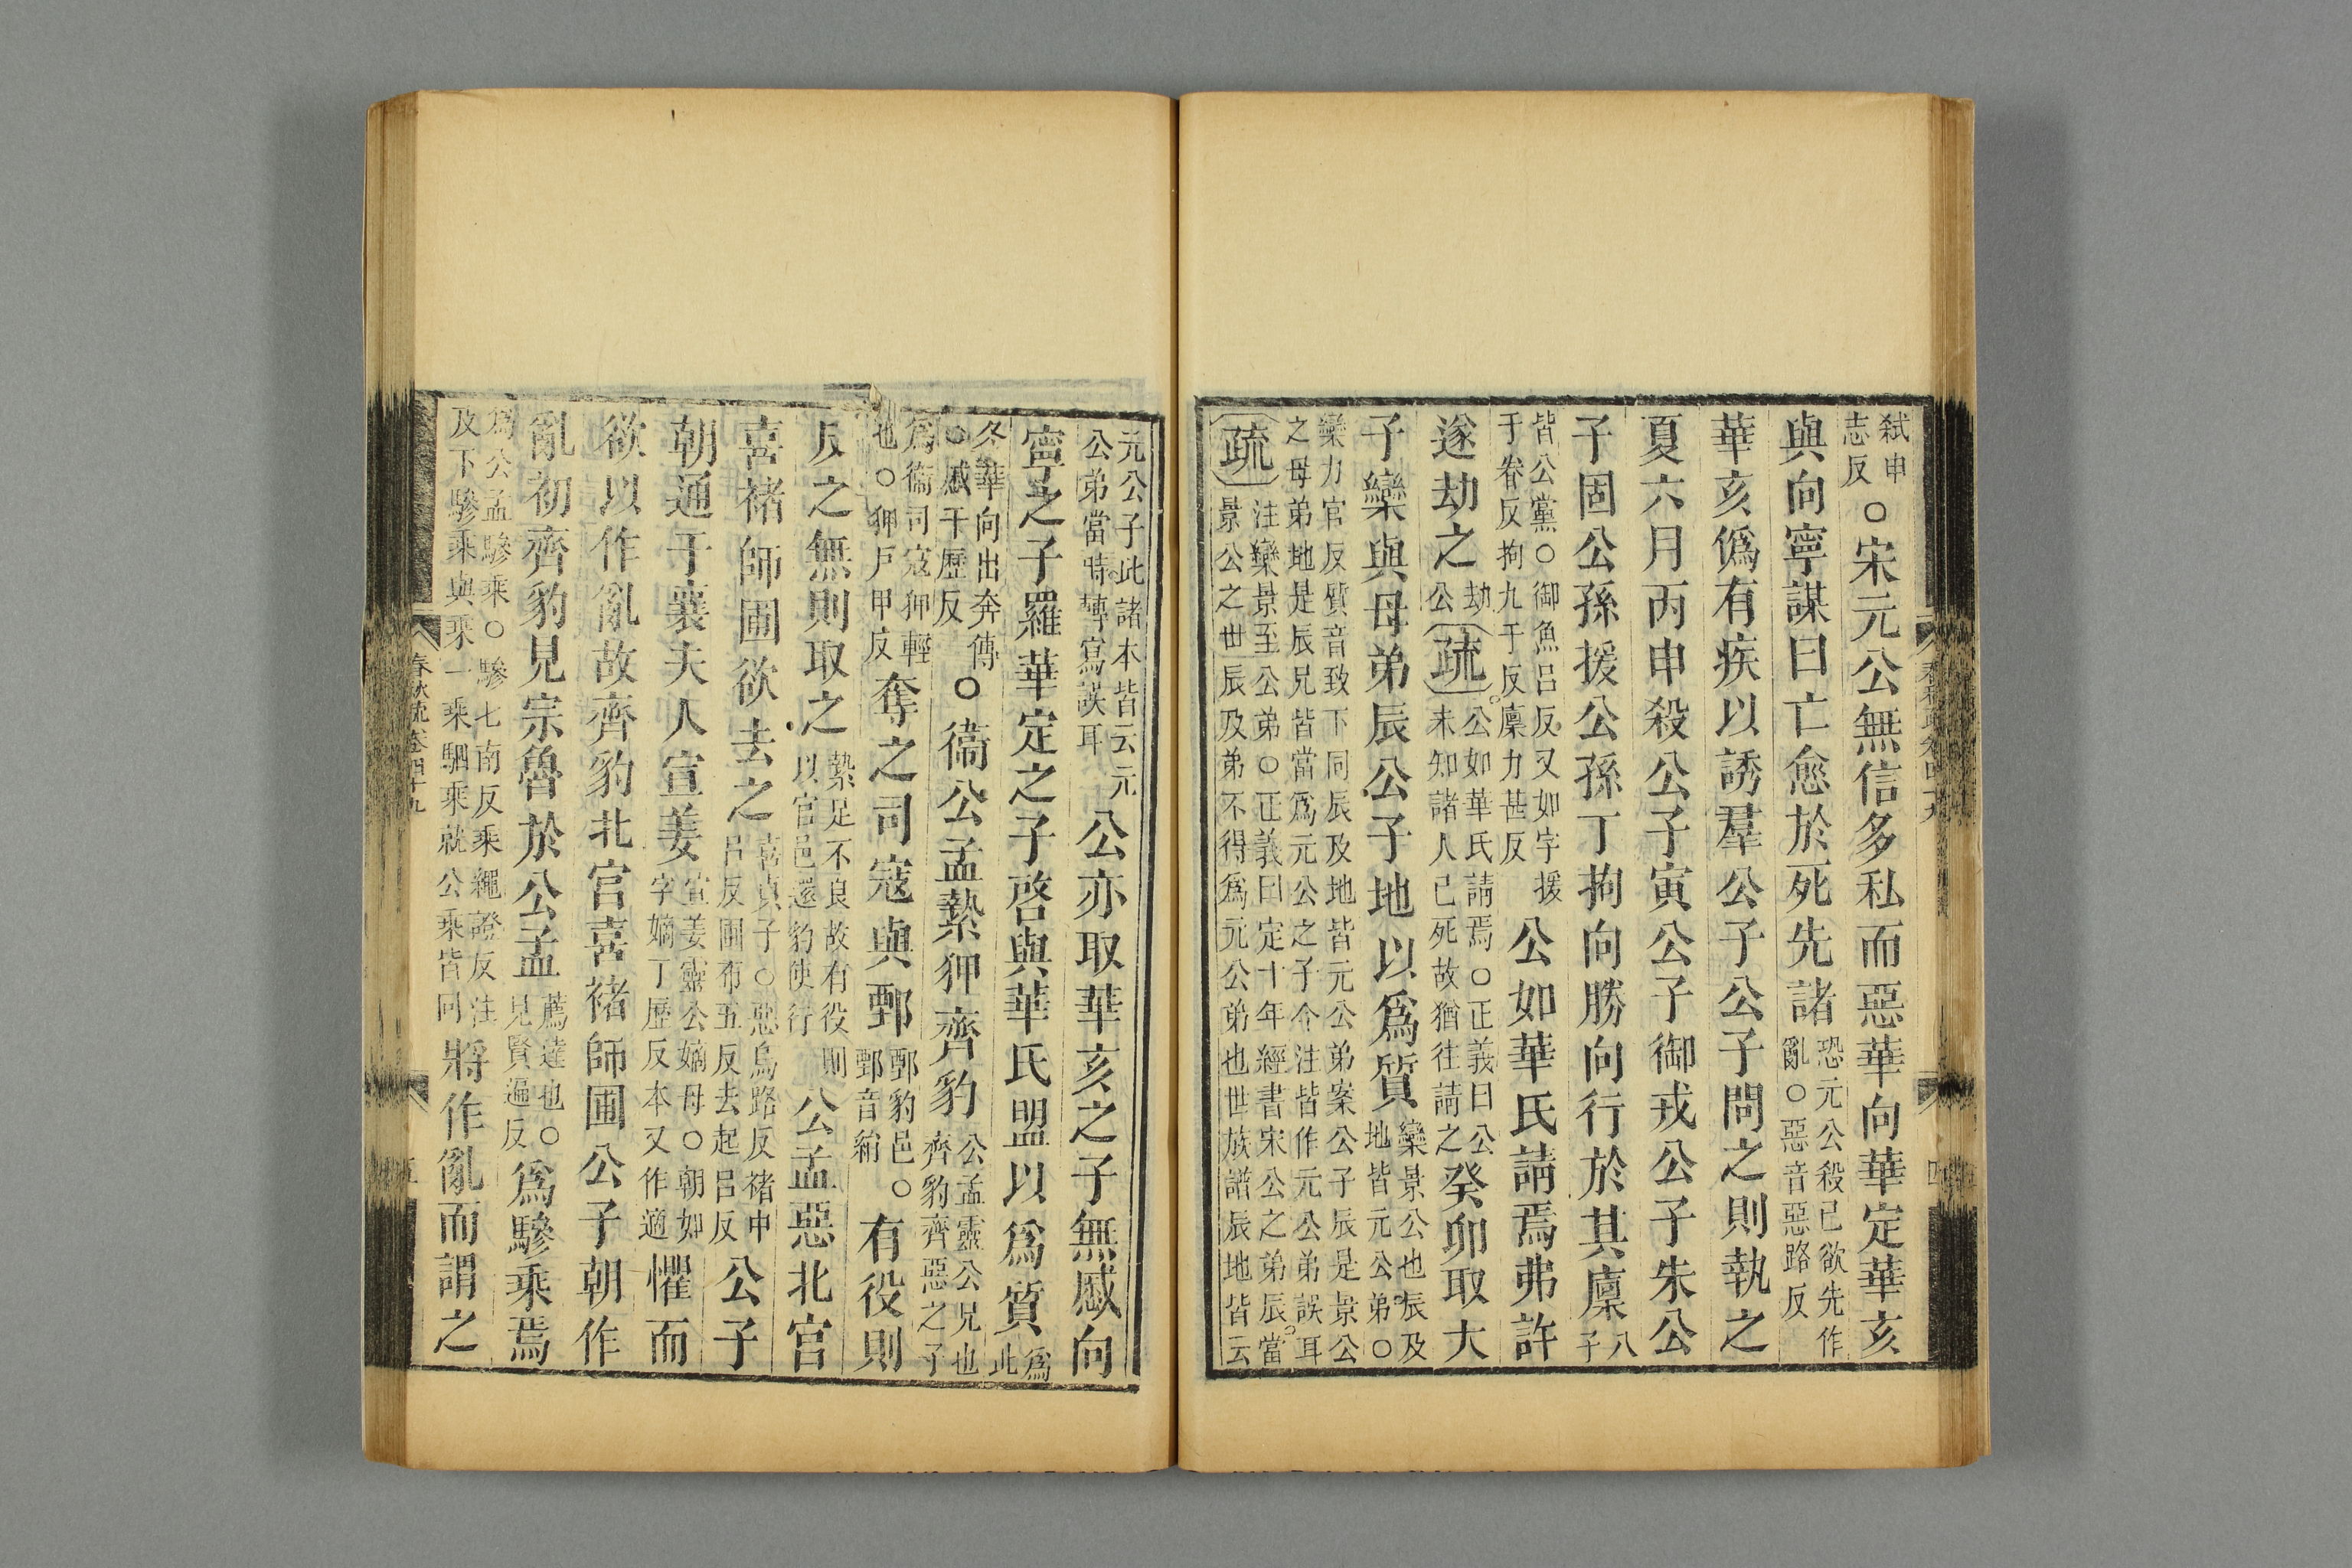 弑申志反○宋元公無信多私而惡華向華定華亥
與向寧謀曰亡愈於死先諸恐元公殺已欲先作亂○惡音惡路反
華亥僞有疾以誘羣公子公子問之則執之
夏六月丙申殺公子寅公子御戎公子朱公
子固公孫援公孫丁拘向勝向行於其廩八子
皆公黨○御魚呂反又如字援于眷反拘九于反廩力甚反公如華氏請焉弗許
遂劫之劫公疏公如華氏請焉○正義曰公未知諸人已死故猶往請之癸卯取大
子欒與母弟辰公子地以爲質欒景公也辰及地皆元公弟○
欒力官反質音致下同辰及地皆元公弟案公子辰是景公之母弟地是辰兄皆當爲元公之子今注皆作元公弟誤耳
疏注欒景至公弟○正義曰定十年經書宋公之弟辰當景公之世辰及弟不得爲元公弟也世族譜辰地皆云
元公子此諸本皆云元公弟當時轉寫誤耳公亦取華亥之子無慼向
寧之子羅華定之子啓與華氏盟以爲質爲此
冬華向出奔傳○慼千歷反○衞公孟縶狎齊豹公孟靈公兄也齊豹齊惡之子
爲衞司寇狎輕也○狎戶甲反奪之司寇與鄄鄄豹邑○鄄音絹有役則
反之無則取之縶足不良故有役則以官邑還豹使行公孟惡北宮
喜褚師圃欲去之喜貞子○惡烏路反褚中呂反圃布五反去起呂反公子
朝通于襄夫人宣姜宣姜靈公嫡母○朝如字嫡丁歷反本又作適懼而
欲以作亂故齊豹北宮喜褚師圃公子朝作
亂初齊豹見宗魯於公孟薦達也○見賢遍反爲驂乘焉
爲公孟驂乘○驂七南反乘繩證反注及下驂乘與乘一乘駟乘就公乘皆同將作亂而謂之
春秋疏卷四十九